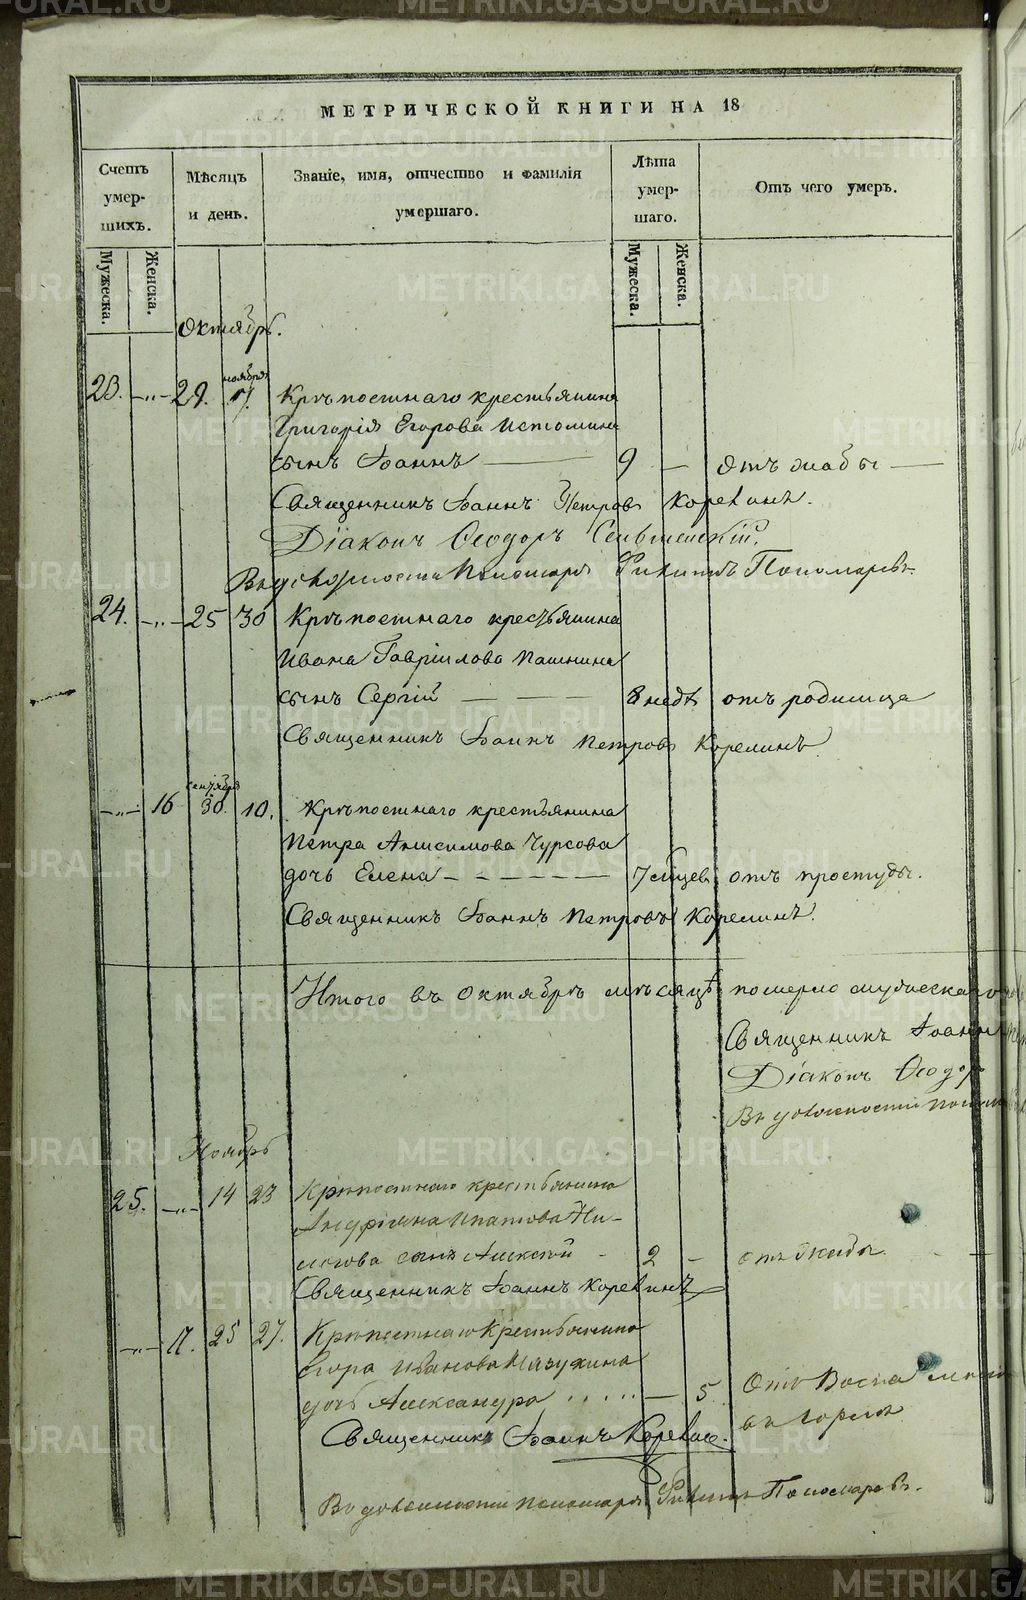 МЕТРИЧЕСКОЙ КНИГИ НА 18
Счетъ умер-шихъ.
Мѣсяцъ и день.
Званіе, имя, отчество и фамилія умершаго.
Лѣта умер-шаго.
Отъ чего умеръ.
Мужеска.
Женска.
Мужеска.
Женска.
Октябрь.
ноября
23. -„- 29. Крѣпостнаго крестьянина
Григорія Егорова Истомина
сынъ Іоаннъ 9 — отъ жабы
Священникъ Іоаннъ Петровъ Корелинъ.
Діаконъ Ѳеодоръ
Въ должности Пономаря Пономаревъ.
24. -„- 25 30 Крѣпостнаго крестьянина
Ивана Гавріилова Пашнина
сынъ Сергій 8 недѣ отъ родимца
Священникъ Іоаннъ Петровъ Корелинъ
сентября
-„- 16 30. 10. Крѣпостнаго крестьянина
Петра Анисимова Чурсова
дочь Елена 7 мѣсцев отъ простуды.
Священникъ Іоаннъ Петровъ Корелинъ.
Итого въ Октябрѣ мѣсяцѣ померло мужескаго
Священникъ Іоаннъ
Діаконъ Ѳеодор
Въ должности
Ноябрь
25. -„- 14 23 Крѣпостнаго крестьянина
Ипатова
сынъ Алексѣй 2 — отъ жабы
Священникъ Іоаннъ Корелинъ
-„- 17. 25 27. Крѣпостнаго Крестьянина
Егора Иванова Мазухина
дочь Александра — 5. Отъ
въ горлѣ
Священникъ Іоаннъ Корелинъ.
Въ должности пономаря Пономаревъ.
METRIKI.GASO-URAL.RU